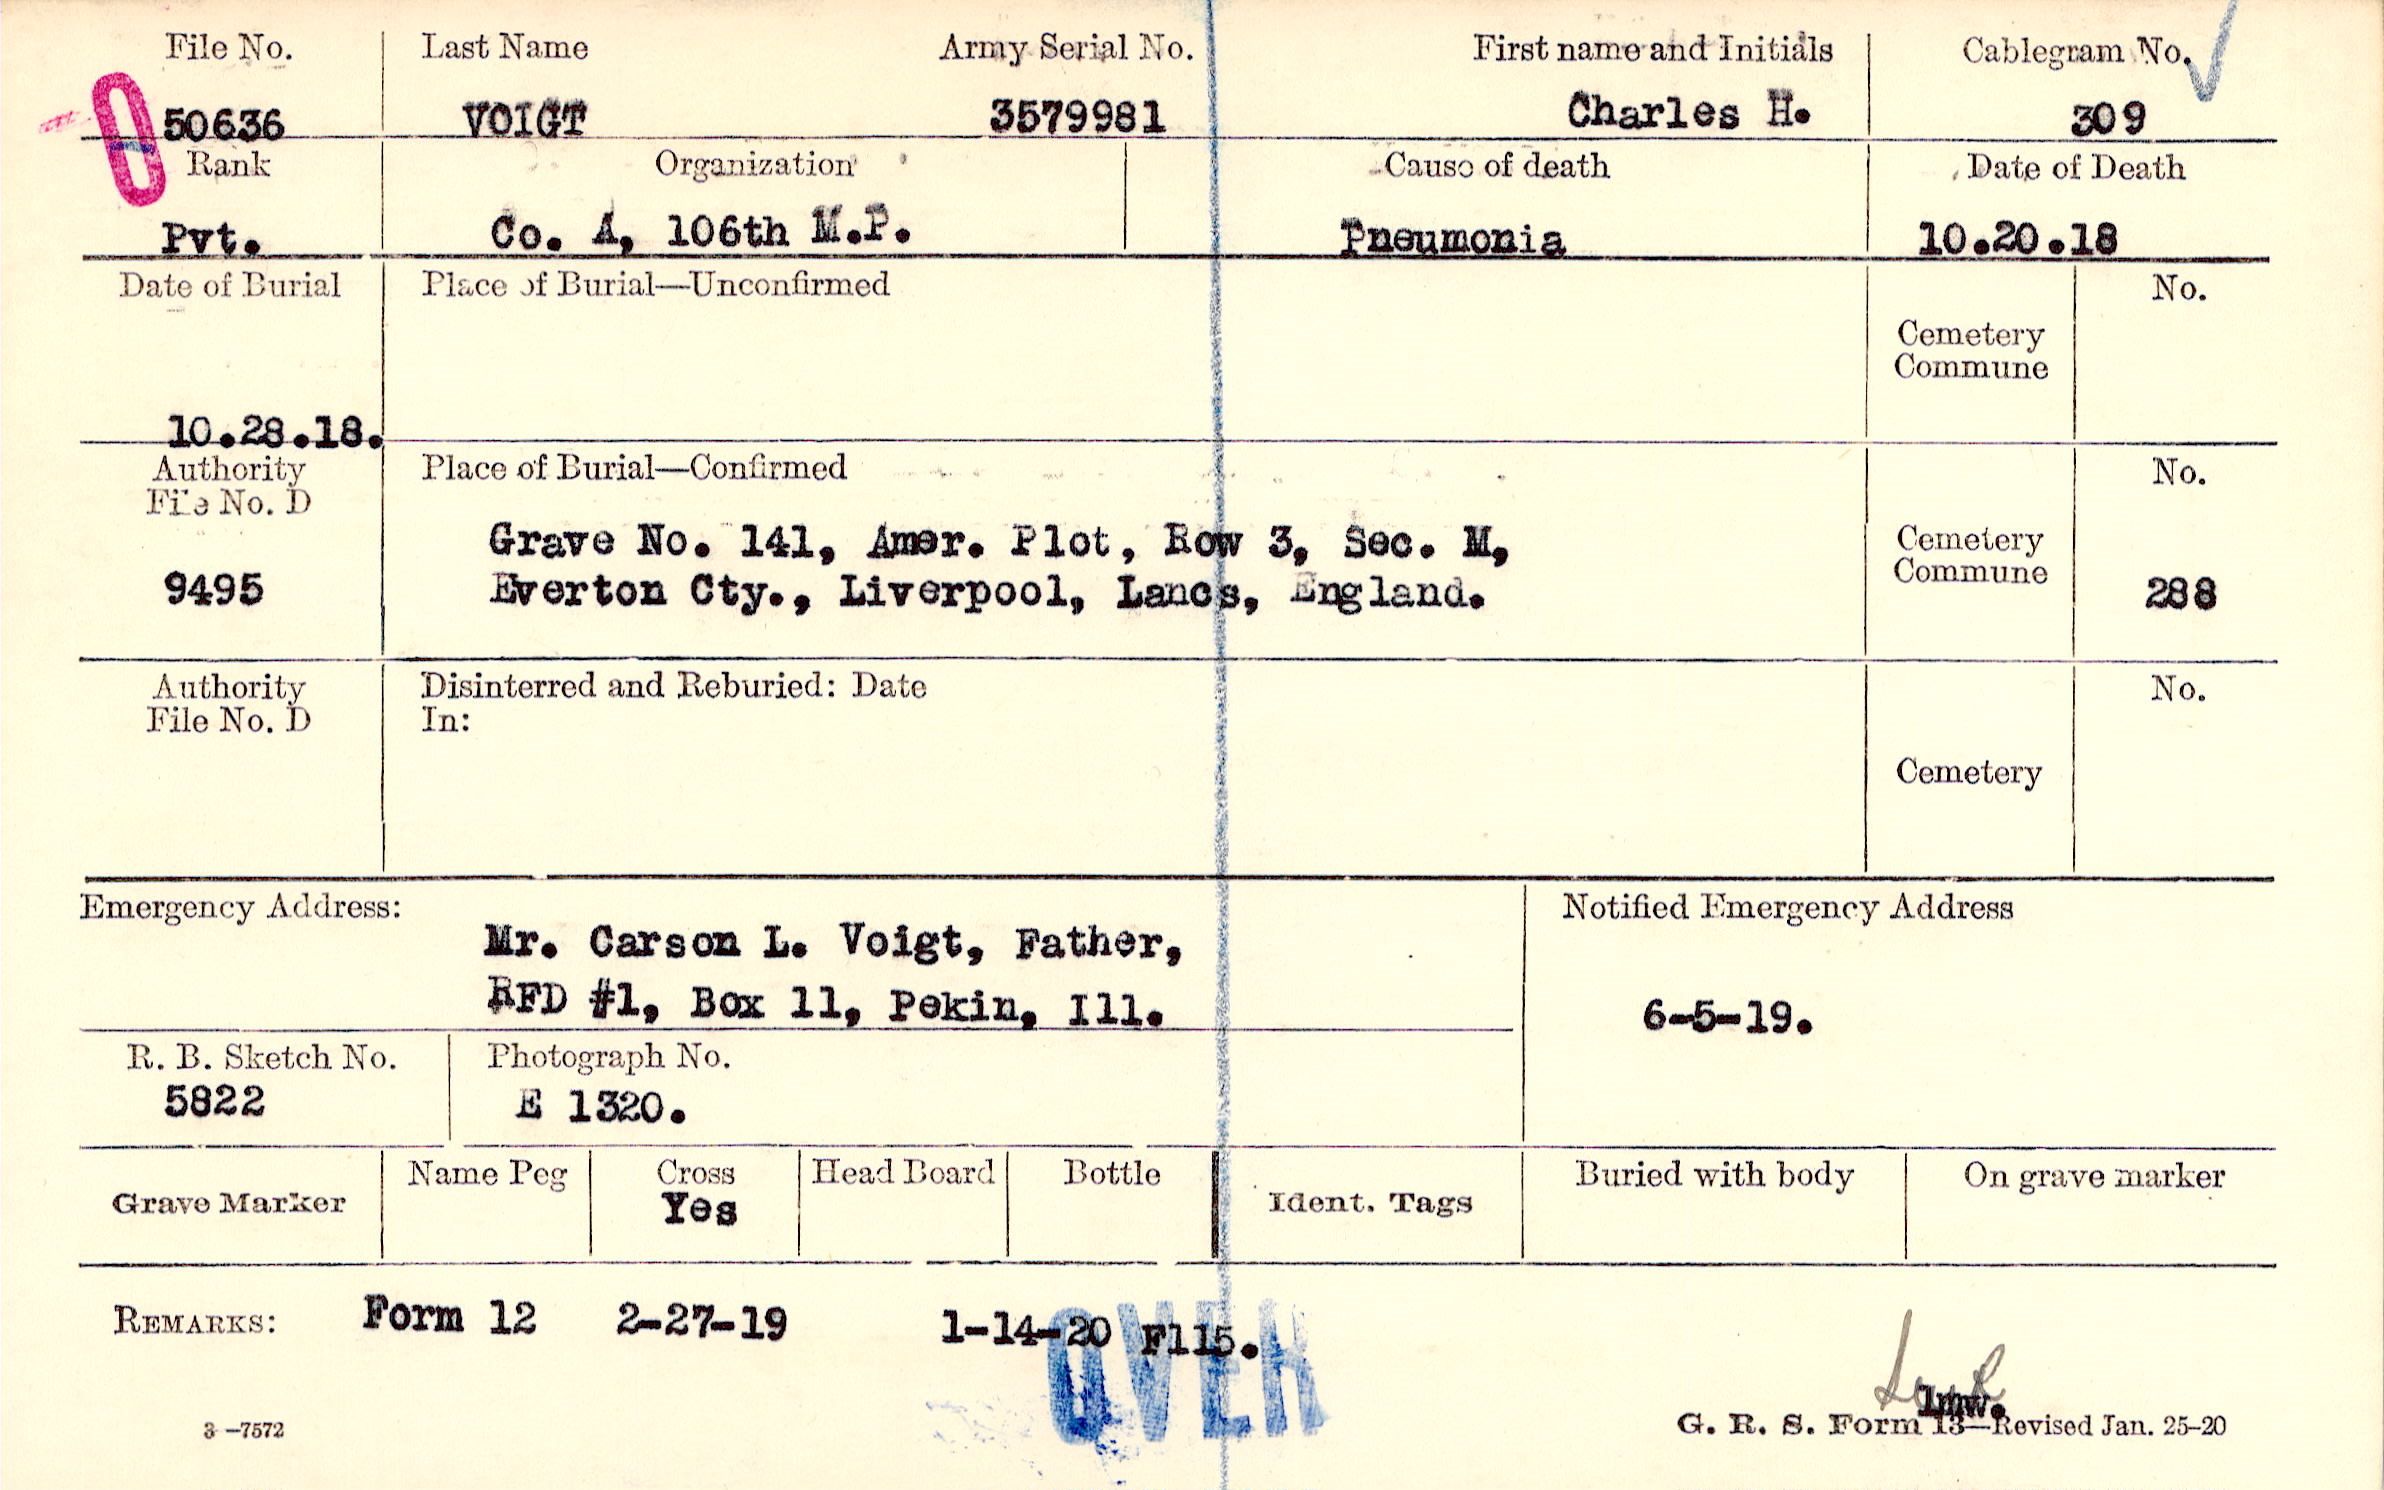 File No. Last Name Army Serial No. First name and Initials Cablegram No.
50636 VOIGT 3579981 Charles H. 309
Rank Organization Cause of death Date of Death
Pvt. Co. A, 106th M.P. Pneumonia 10.20.18
Date of Burial Place of Burial—Unconfirmed No.
Cemetery
Commune
10.28.18.
Authority Place of Burial—Confirmed No.
File No. D
Grave No. 141, Amer. Plot, Row 3, Sec. M, Cemetery
9495 Everton Cty., Liverpool, Lancs, England. Commune 288
Authority Disinterred and Reburied: Date No.
File No. D In:
Cemetery
Emergency Address: Notified Emergency Address
Mr. Carson L. Voigt, Father,
RFD #1, Box 11, Pekin, Ill. 6-5-19.
R. B. Sketch No. Photograph No.
5822 E 1320.
Grave Marker Name Peg Cross Head Board Bottle Ident. Tags Buried with body On grave marker
Yes
REMARKS: Form 12 2-27-19 1-14-20 F115.
OVER
lmw.
3—7572 G. R. S. Form 13—Revised Jan. 25-20